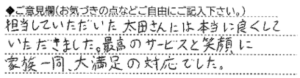 ◆ご意見欄(お気づきの点などご自由にご記入下さい。)
担当していただいた太田さんには本当に良くして
いただきました。最高のサービスと笑顔に
家族一同、大満足の対応でした。